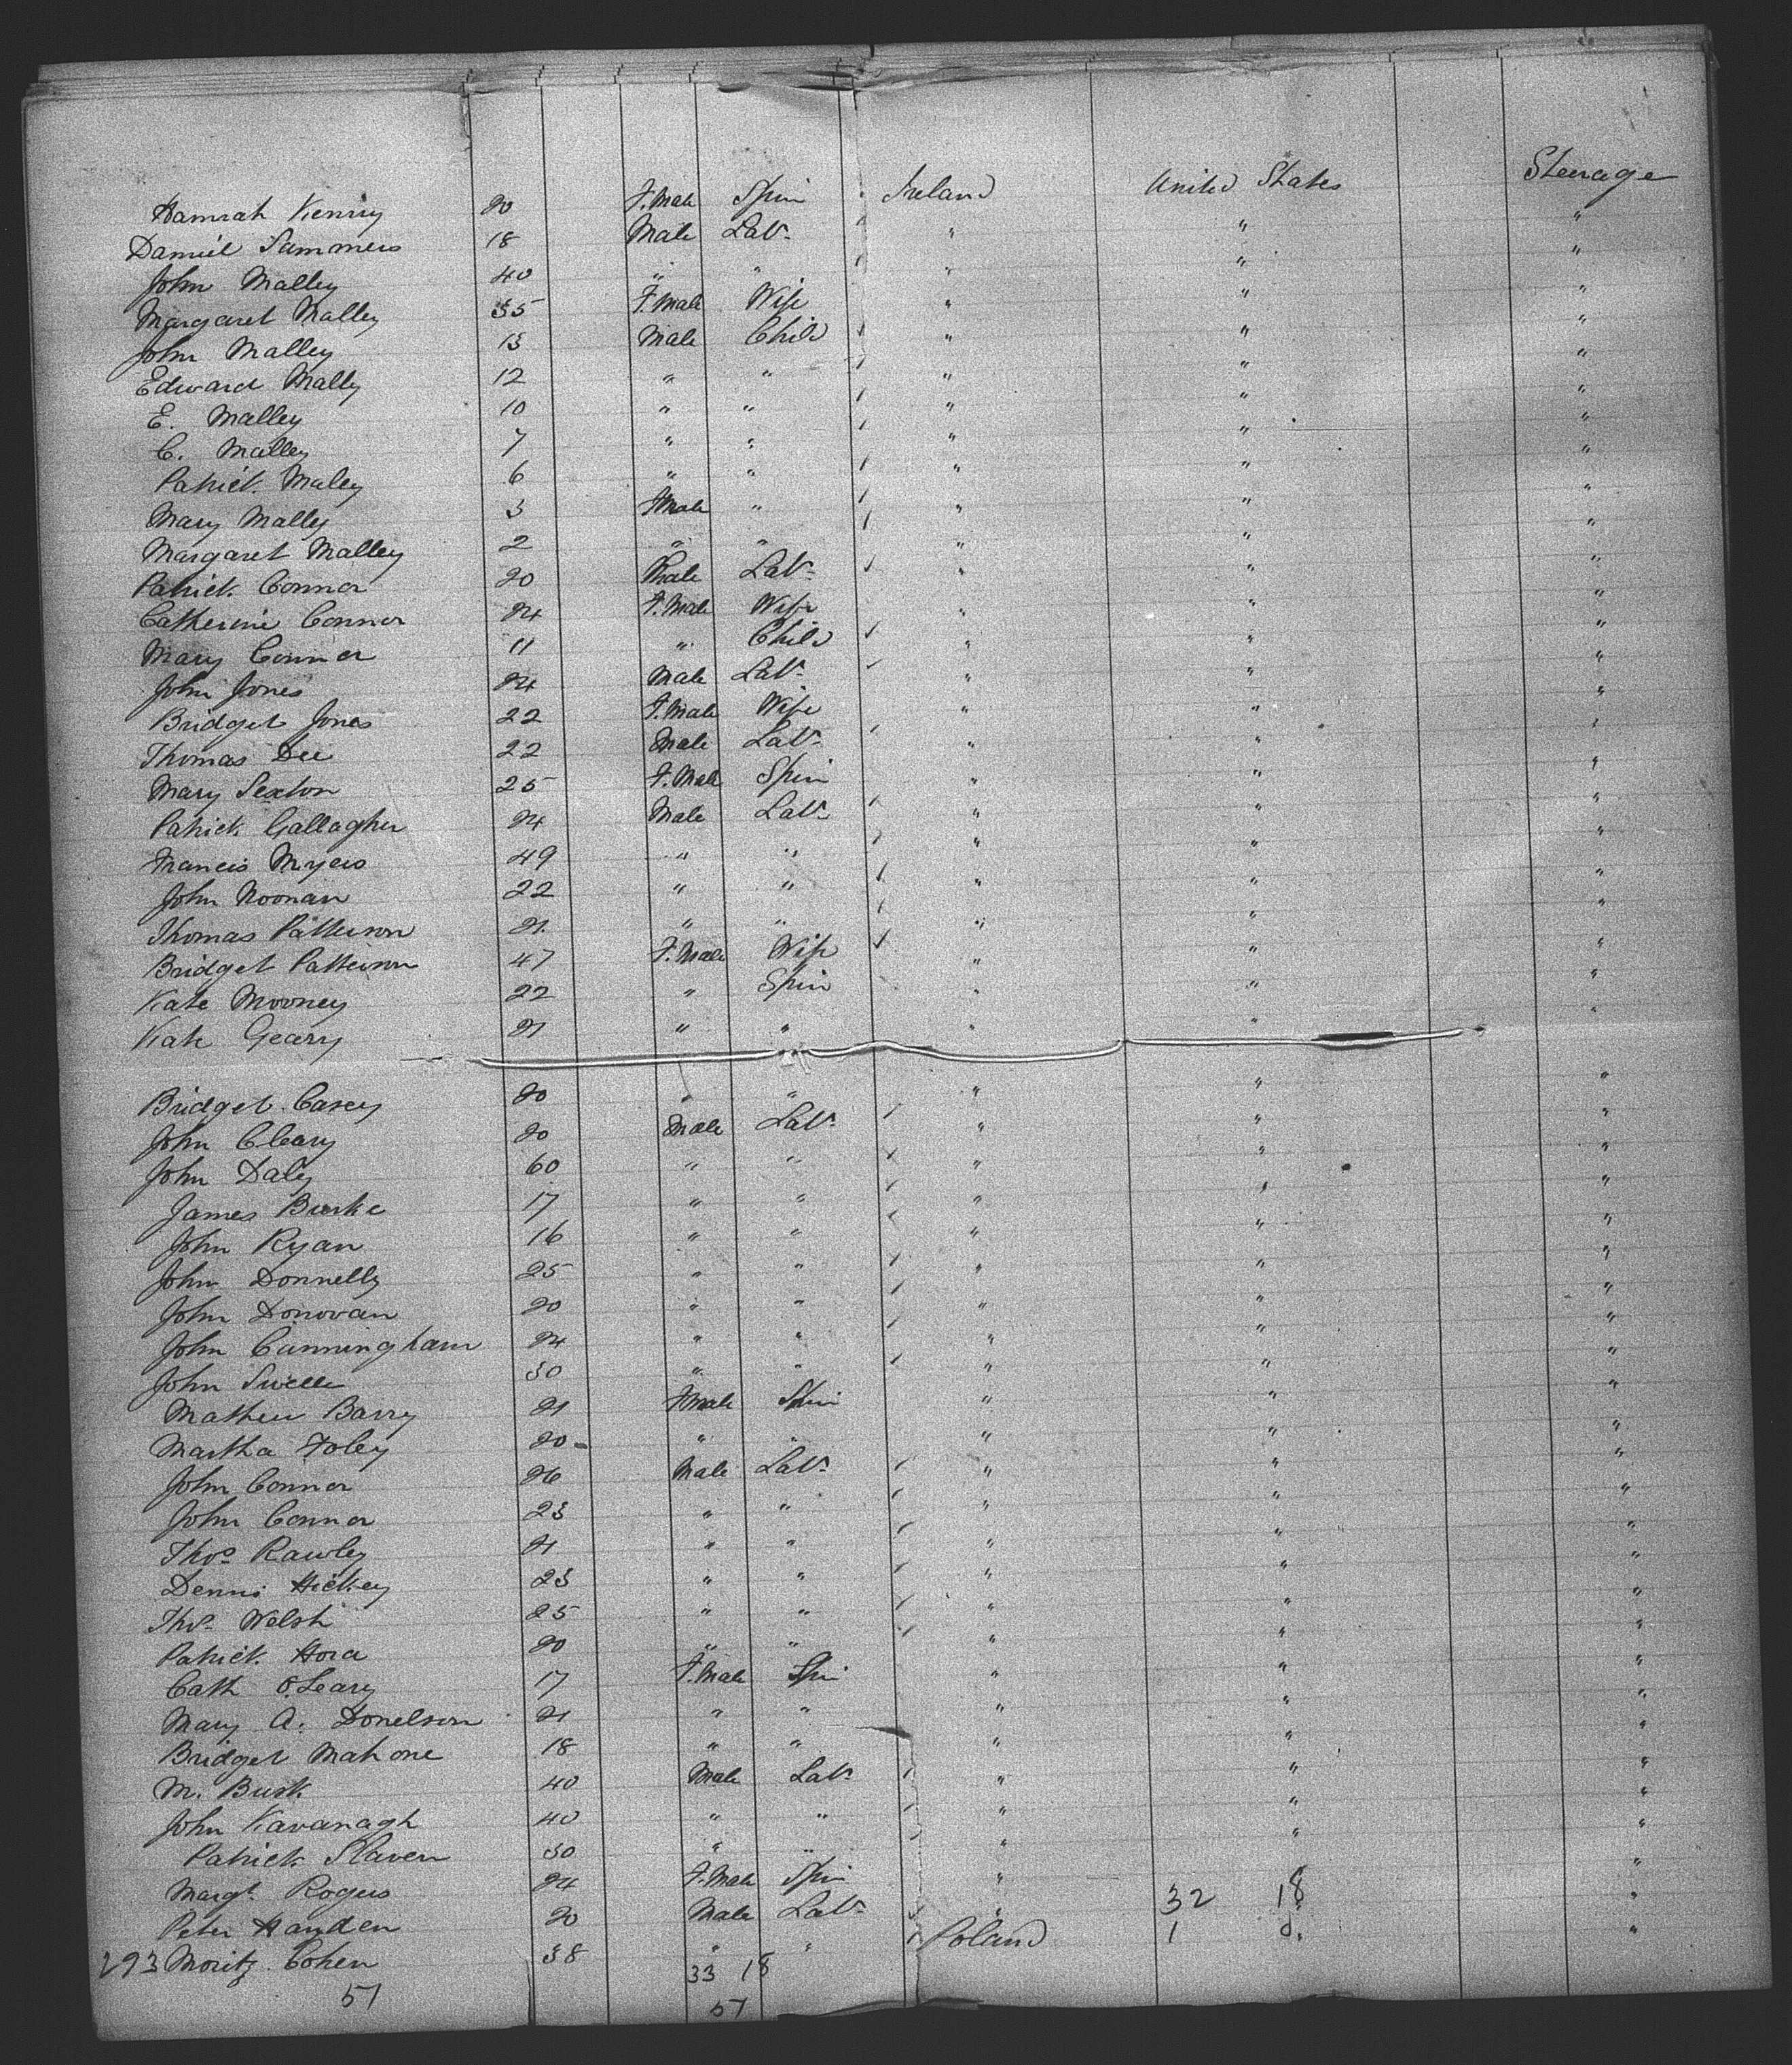 Hannah Kenny 20 F.Male Spin Ireland United States Steerage
Daniel Summers 18 Male Labr " " "
John Malley 40 " " " " "
Margaret Malley 35 F.Male Wife " " "
John Malley 13 Male Child " " "
Edward Mally 12 " " " " "
E. Malley 10 " " " " "
C. Malley 7 " " " " "
Patrick Maley 6 " " " " "
Mary Mally 3 Fmale " " " "
Margaret Malley 2 " " " " "
Patrick Connor 20 Male Labr " " "
Catherine Connor 24 F.Male Wife " " "
Mary Connor 11 " Child " " "
John Jones 24 Male Labr " " "
Bridget Jones 22 F.Male Wife " " "
Thomas Dee 22 Male Labr " " "
Mary Sexton 25 F.Male Spin " " "
Patrick Gallagher 24 Male Labr " " "
Francis Myers 49 " " " " "
John Noonan 22 " " " " "
Thomas Patterson 21 " " " " "
Bridget Patterson 47 F.Male Wife " " "
Kate Mooney 22 " Spin " " "
Kate Geary 21 " " " " "
Bridget Casey 20 " " " " "
John Cleary 20 Male Labr " " "
John Daly 60 " " " " "
James Burke 17 " " " " "
John Ryan 16 " " " " "
John Donnelly 25 " " " " "
John Donovan 20 " " " " "
John Cunningham 24 " " " " "
John 30 " " " " "
Mathew Barry 21 Fmale Spin " " "
Martha Foley 20 " " " " "
John Connor 26 Male Labr " " "
John Connor 23 " " " " "
Thos Rawley 21 " " " " "
Dennis Hickey 23 " " " " "
Thos Welsh 25 " " " " "
Patrick Hora 20 " " " " "
Cath O'Leary 17 F.Male Spin " " "
Mary A. Donelson 21 " " " " "
Bridget Mahone 18 " " " " "
M. Busk 40 Male Labr " " "
John Kavanagh 40 " " " " "
Patrick Slaven 30 " " " " "
Margt. Rogers 24 F.Male Spin " "
Peter Hayden 20 Male Labr " 32 18 "
293 Moritz Cohen 38 " " Poland 1 0. "
51 33 18
51